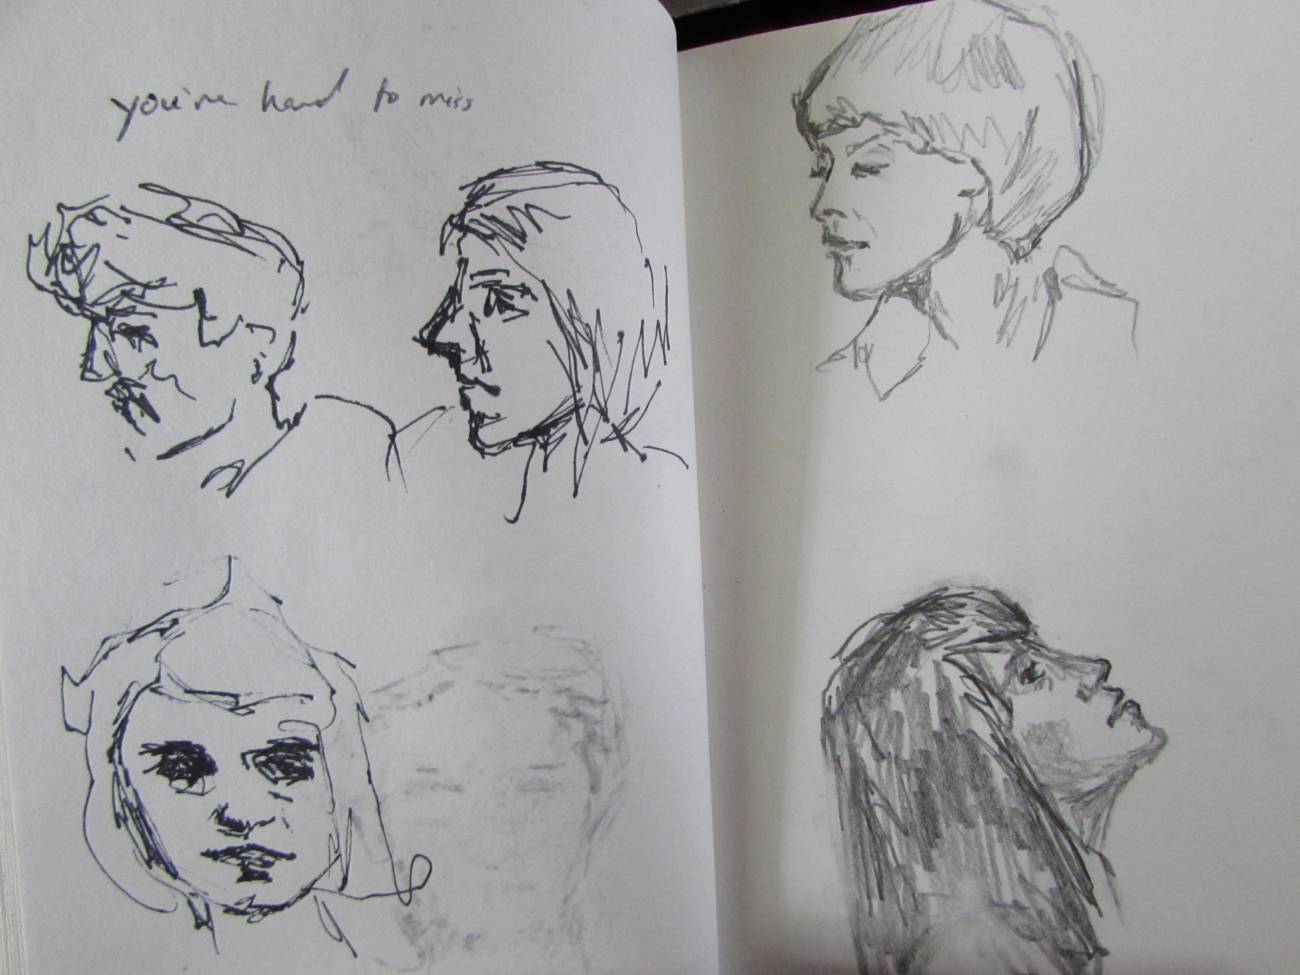 you're hard to miss